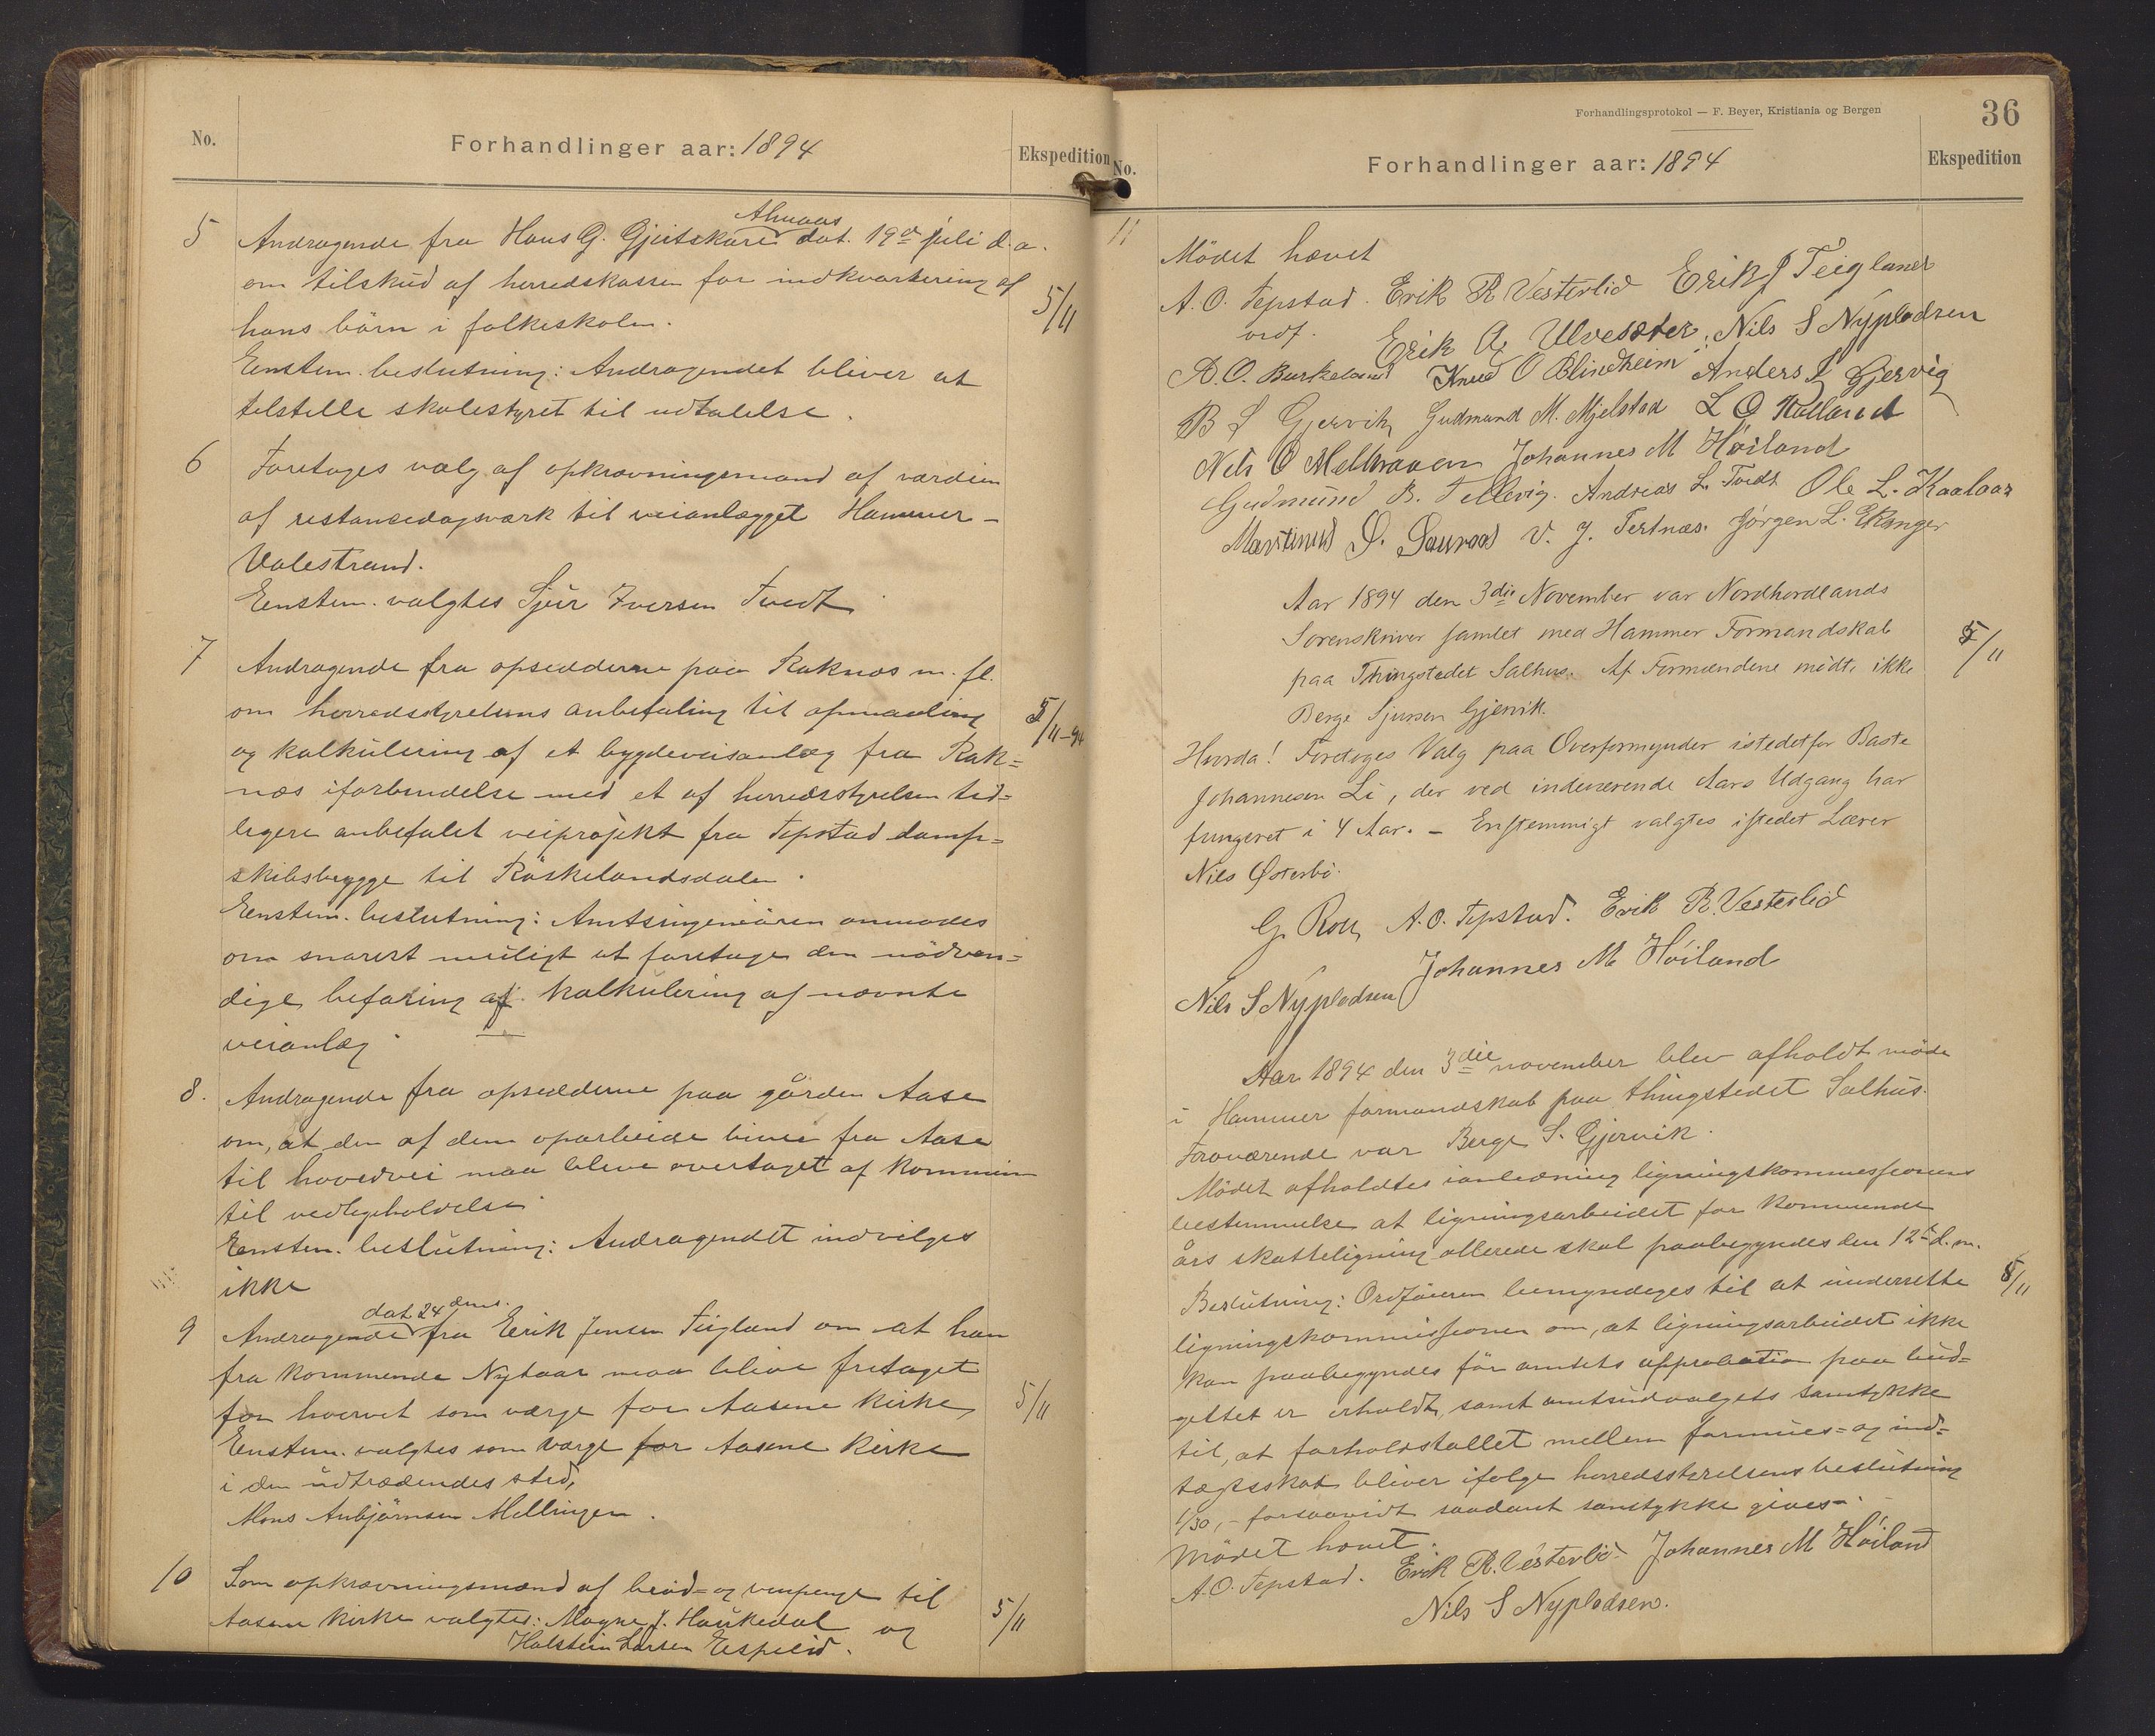 No.
Forhandlinger aar: 1894
Ekspedition
5 Andragende fra Hans G. Gjeitskare Almaas dat. 19de juli d.a.
om tilskud af herredskassen for indkvartering af
hans börn i folkeskolen.
5/11
Enstem. beslutning: Andragendet bliver at
tilstille skolestyret til udtalelse.
6 Foretoges valg af opkrævningsmand af værdien
af restancedagsværk til veianlægget Hammer-
Valestrand.
Eenstem. valgtes Sjur Iversen Tvedt
7 Andragende fra opsidderne paa Raknæs m. fl.
om herredsstyrelsens anbefaling til opmaaling
5/11-94
og kalkulering af et bygdeveisanlæg fra Rak=
næs iforbindelse med et af herredsstyrelsen tid=
ligere anbefalet veiprojekt fra Tepstad damp=
skibsbrygge til Röskelandsdalen.
Eenstem. beslutning: Amtsingeniören anmodes
om snarest muligt at foretage den nödven=
dige befaring af kalkulering af nævnte
veianlæg
8. Andragende fra opsidderne paa gården Aase
om, at den af dem oparbeide binei fra Aase
til hovedvei maa blive overtaget af kommunen
til vedligeholdelse
Eenstem. beslutning: Andragendet indvilges
ikke
9 Andragende dat. 24 dms. fra Eerik Jensen Teigland om at han
fra kommende Nytaar maa blive fritaget
for hvervet som værge for Aasene kirke
5/11
Eenstem. valgtes som værge for Aasene kirke
i den udtrædendes sted,
Mons Anbjörnsen Mellingen.
10 Som opkrævningsmænd af bröd= og vinpenge til
Aasene kirke valgtes: Magne J. Haukedal og
5/11
Holstein Larsen Eespelid.
Forhandlingsprotokol — F. Beyer, Kristiania og Bergen
36
No.
Forhandlinger aar: 1894
Ekspedition
11
Mödet hævet
A. O. Tepstad. Erik R Vesterlid Erik J Teigland
ordf.
Erik A. Ulvesæter. Nils S Nyplodsen
A. O. Burkeland Knud O Blindheim Anders S Gjervig
B S Gjervik Gudmund M. Mjelstad L O Kalland
Nils O Melkraaen Johannes M Höiland
Gudmund B. Tellevig. Andreas L. Tvedt Ole L. Kaalaas
Martinus D. Sauraas V. J. Tertnæs. Jörgen L. Ekanger
Aar 1894 den 3die November var Nordhordlands
Sorenskriver samlet med Hammer Formandskab
paa Thingstedet Salhus. Af Formændene mödte ikke
5/11
Berge Sjursen Gjervik.
Hvorda! Foretoges Valg paa Overformynder istedetfor Baste
Johannesen Li, der ved indeværende Aars Udgang har
fungeret i 4 Aar. - Enstemmigt valgtes istedet Lærer
Nils Østerbö.
G. Roll A. O. Tepstad. Erik R. Vesterlid
Johannes M Höiland
Nils S Nyplodsen
Aar 1894 den 3die november blev afholdt möde
i Hammer formandskab paa thingstedet Salhus.
Fraværende var Berge S. Gjervik.
Mödet afholdtes ianledning ligningskommissionens
bestemmelse at ligningsarbeidet for kommende
års skatteligning allerede skal paabegyndes den 12te d. m.
Beslutning: Ordföreren bemyndeges til at underrette
5/11
ligningskommissionen om, at ligningsarbeidet ikke
kan paabegyndes för amtets approbation paa bud=
gettet er erholdt, samt amtsudvalgets samtykke
til, at forholdstallet mellem formues= og ind=
tægtsskat bliver ifölge herredsstyrelsens beslutning
1/30, - forsaavidt saadant samtykke gives.
Mödet hævet.
A. O. Tepstad. Erik R. Vesterlid. Johannes M Höiland
Nils S Nyplodsen.